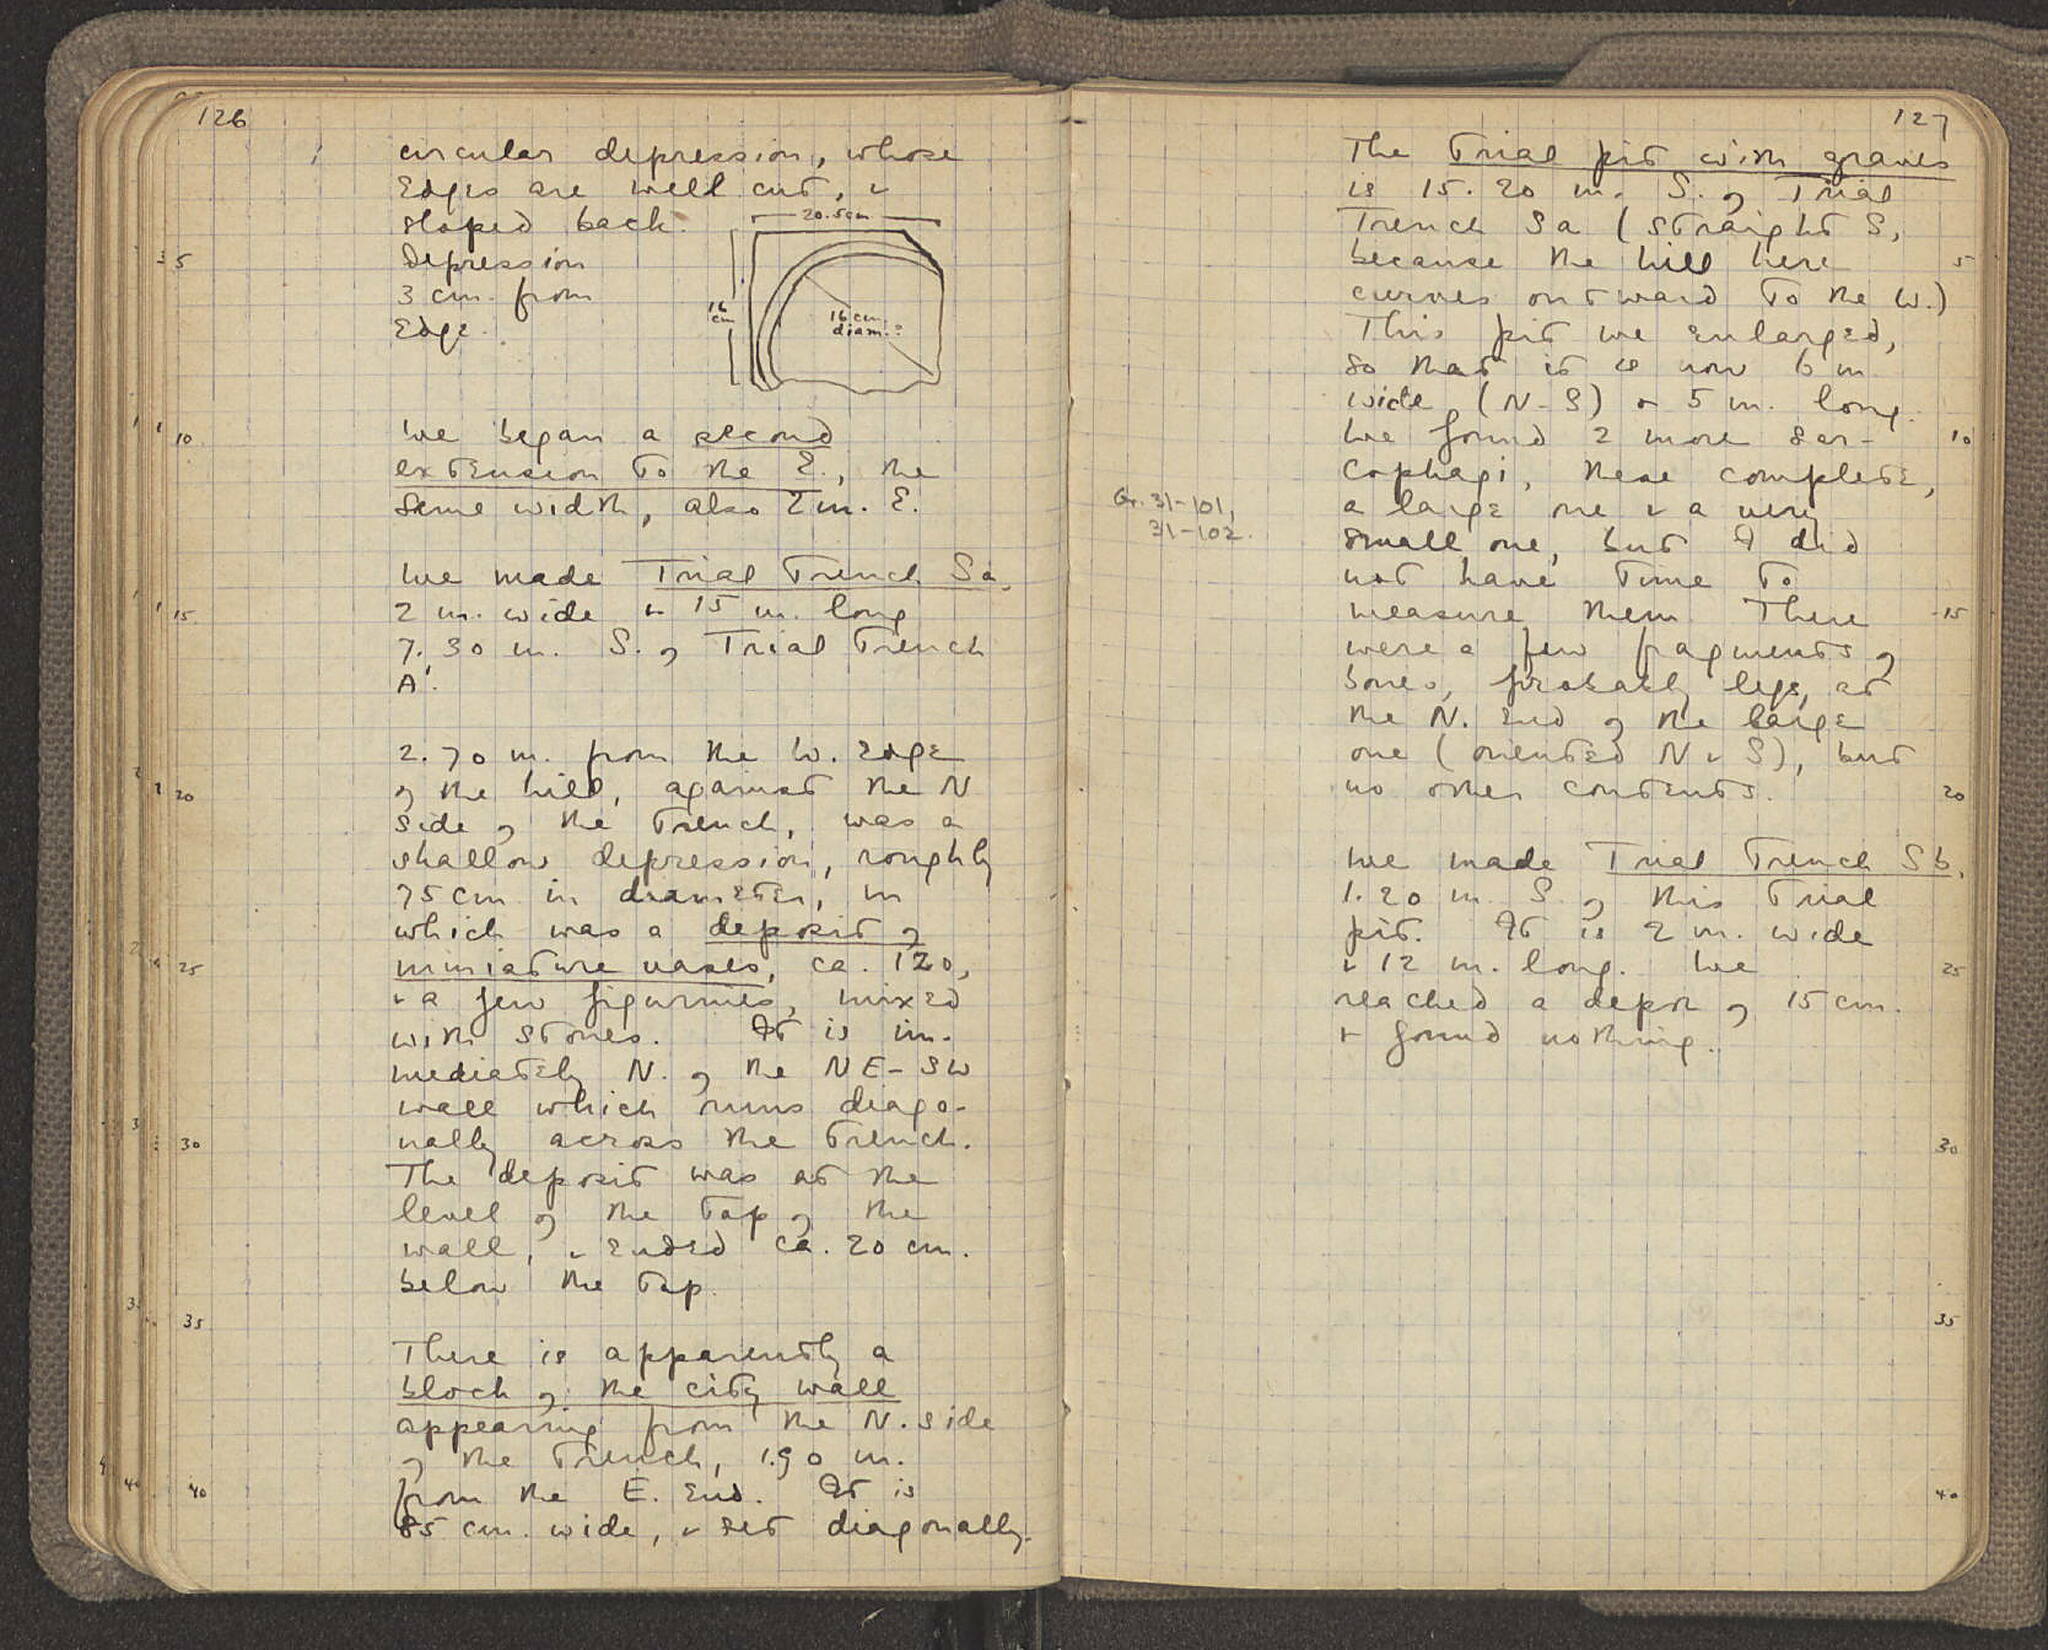 126
circular depression, whose
edges are well cut, &
sloped back.
Depression
3 cm. from
Edge.
20.5 cm
16 cm
16 cm. diam.?
5
10
15
20
25
30
35
40
We began a second
extension to the E., the
same width, also 2 m. E.
We made Trial Trench Sa,
2 m. wide & 15 m. long
7.30 m. S. of Trial Trench
A'.
2.70 m. from the W. edge
of the hill, against the N
side of the trench, was a
shallow depression, roughly
75 cm in diameter, in
which was a deposit of
miniature vases, ca. 120,
& a few figurines, mixed
with stones. It is im-
mediately N. of the NE-SW
wall which runs diago-
nally across the trench.
The deposit was at the
level of the top of the
wall, & ended ca. 20 cm.
below the top.
There is apparently a
block of the city wall
appearing from the N. side
of the trench, 1.90 m.
from the E. end. It is
85 cm. wide, & set diagonally.
127
The Trial pit with graves
is 15.20 m. S. of Trial
Trench Sa (straight S,
because the hill here
curves outward to the W.)
This pit we enlarged,
so that it is now 6 m
wide (N-S) & 5 m. long.
We found 2 more sar-
cophagi, these complete,
a large one & a very
small one, but I did
not have time to
measure them. There
were a few fragments of
bones, probably legs, at
the N. end of the large
one (oriented N & S), but
no other contents.
Gr. 31-101,
31-102.
We made Trial Trench Sb,
1.20 m S. of this trial
pit. It is 2 m. wide
& 12 m. long. We
reached a depth of 15 cm.
& found nothing.
5
10
15
20
25
30
35
40